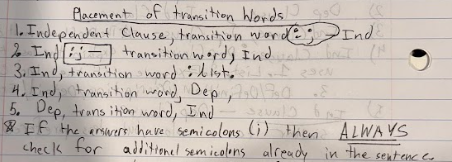 Placement of transition Words
1. Independent Clause, transition word : ; — Ind
2. Ind : ; — transition word, Ind
3. Ind, transition word : list.
4. Ind, transition word, Dep,
5. Dep, transition word, Ind
If the answers have semicolons (;) then ALWAYS
check for additional semicolons already in the sentence